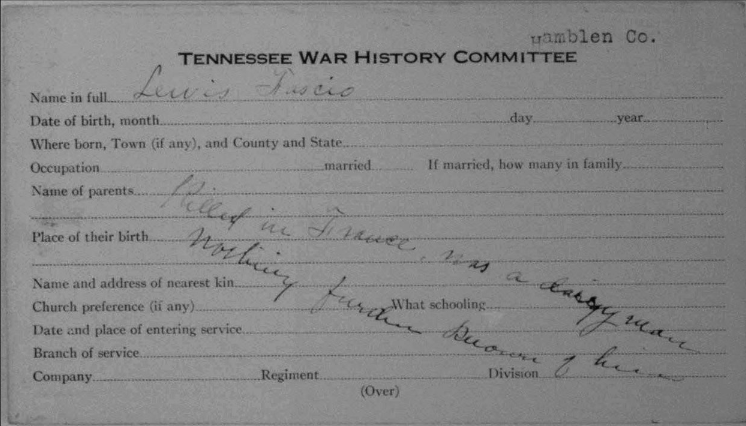 Hamblen Co.
TENNESSEE WAR HISTORY COMMITTEE
Name in full Lewis
Date of birth, month day year
Where born, Town (if any), and County and State
Occupation married If married, how many in family
Name of parents
Place of their birth
Killed in France, was a dairy man
Nothing further known of him
Name and address of nearest kin
Church preference (if any) What schooling
Date and place of entering service
Branch of service
Company Regiment Division
(Over)